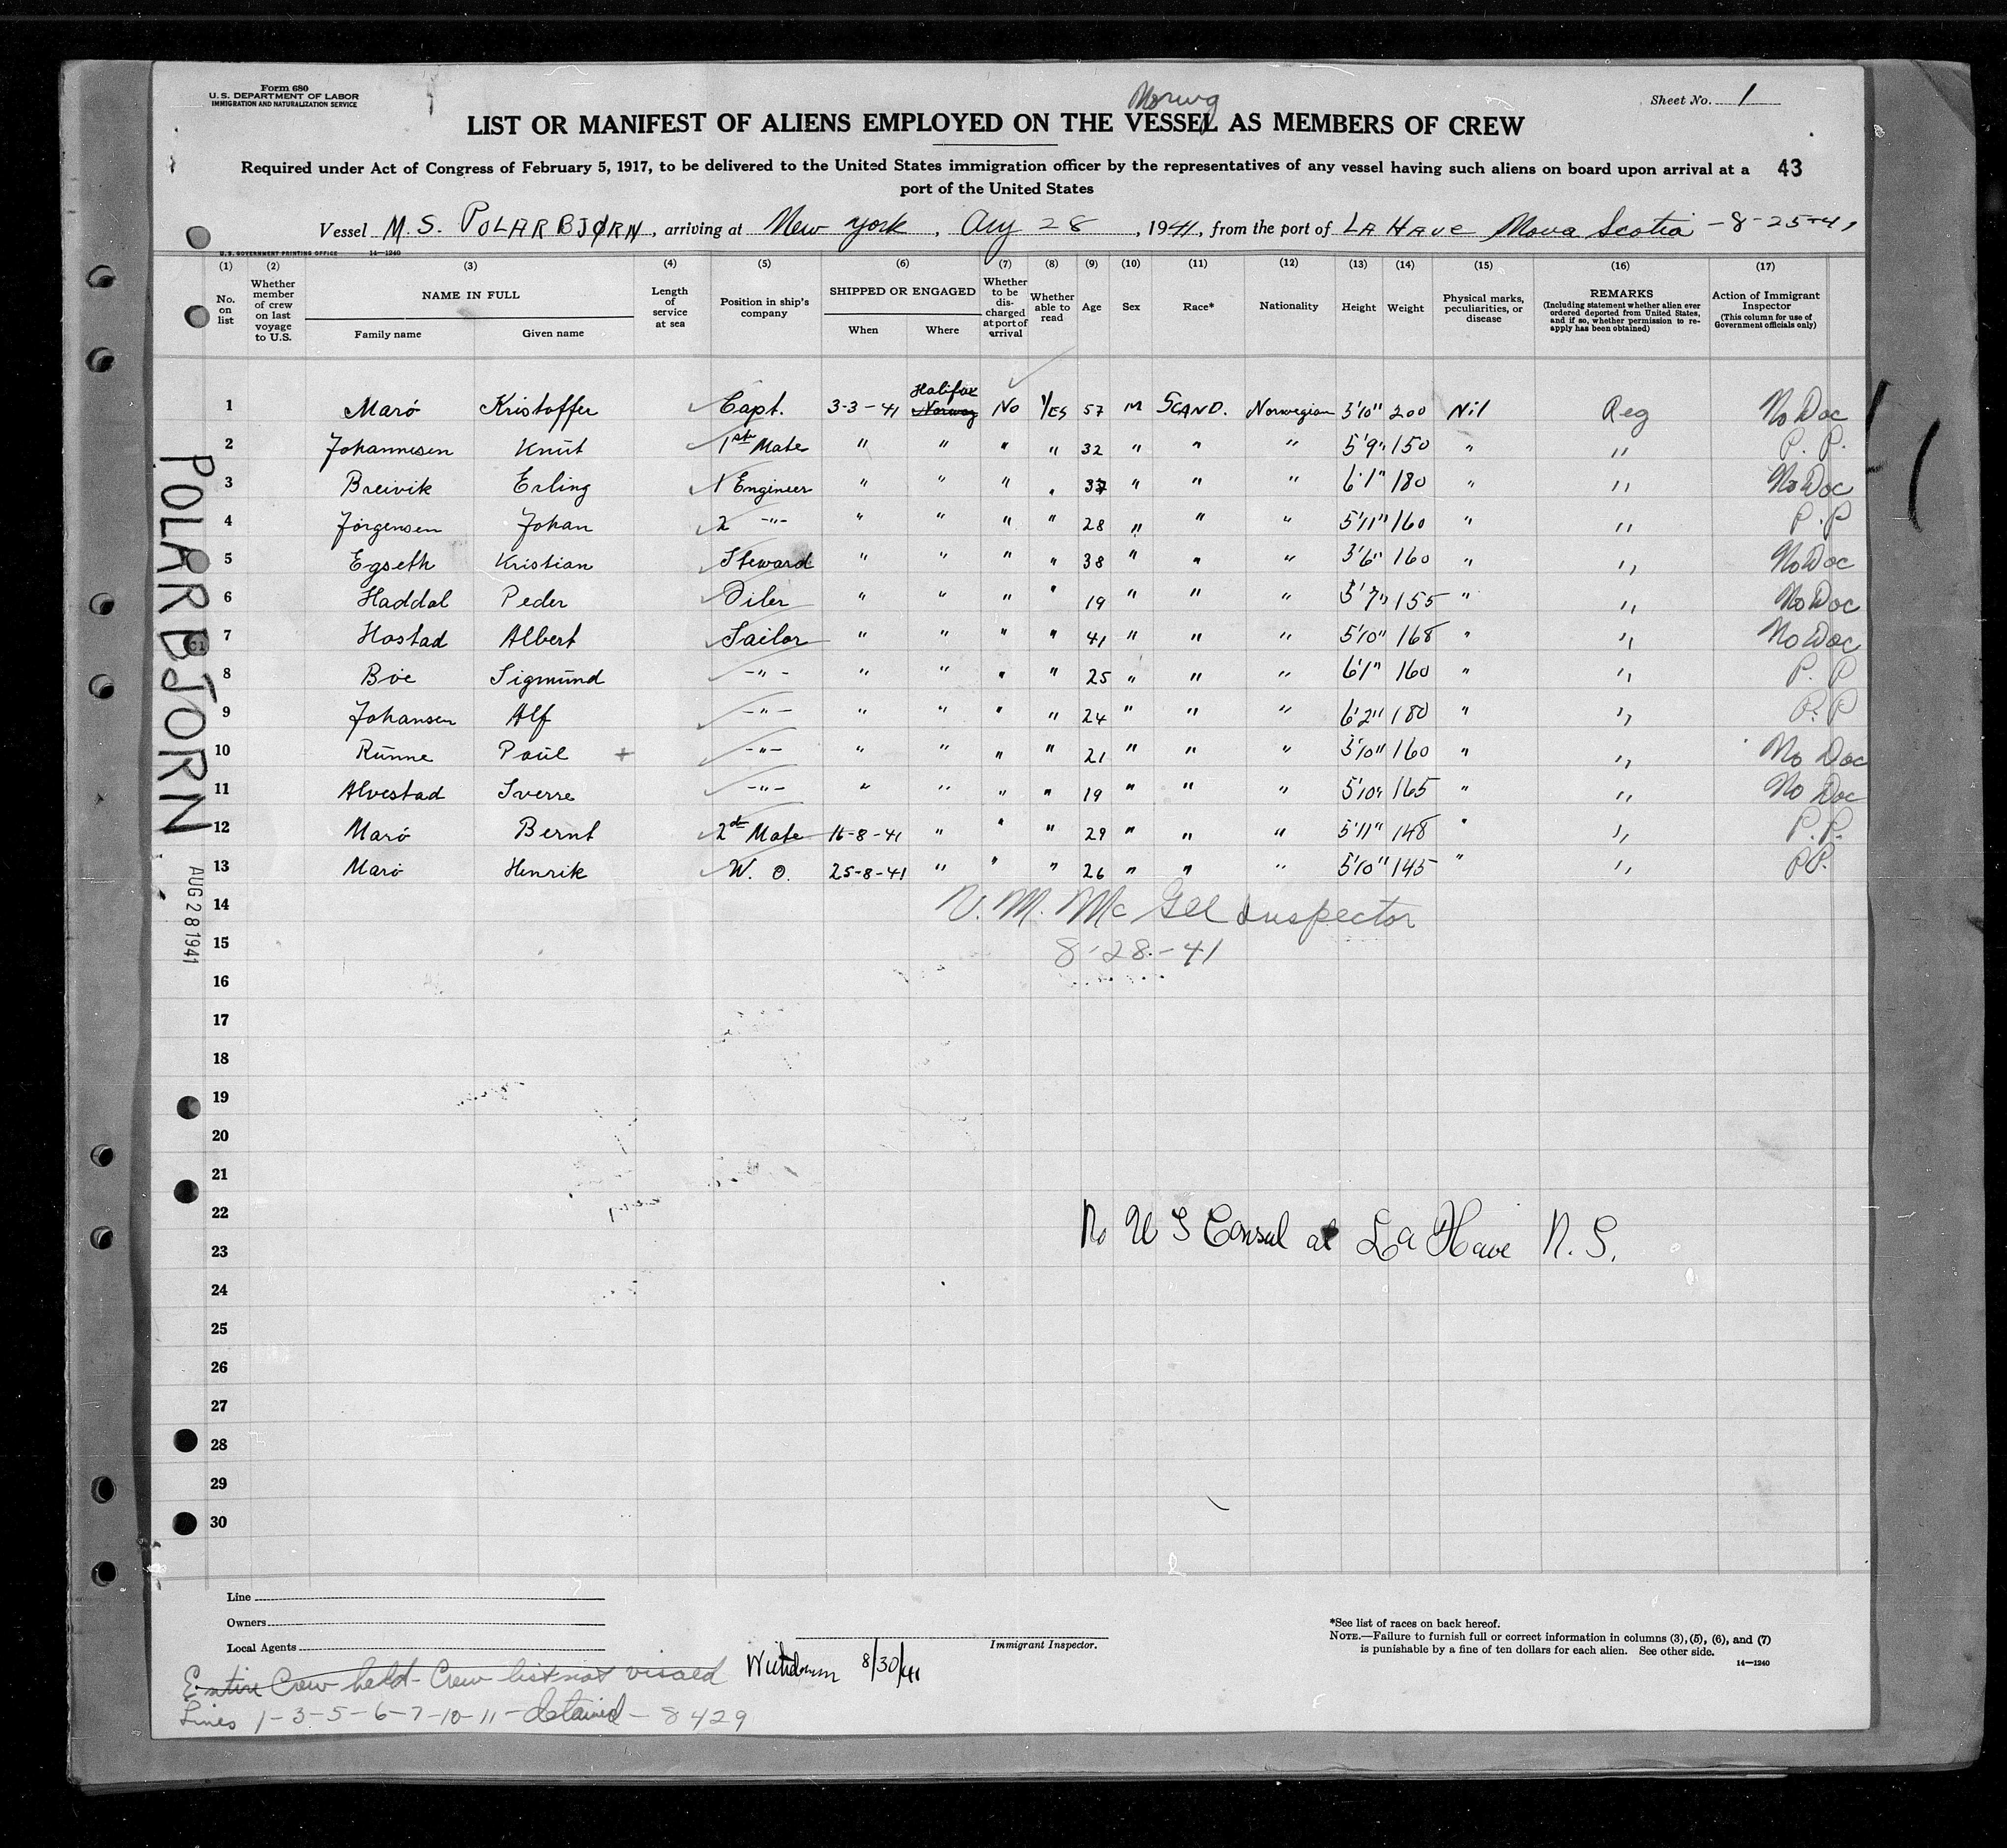 Form 680
U.S. DEPARTMENT OF LABOR
IMMIGRATION AND NATURALIZATION SERVICE
Sheet No. 1
Norwg
LIST OR MANIFEST OF ALIENS EMPLOYED ON THE VESSEL AS MEMBERS OF CREW
Required under Act of Congress of February 5, 1917, to be delivered to the United States immigration officer by the representatives of any vessel having such aliens on board upon arrival at a
port of the United States
43
Vessel M.S. POLARBJØRN, arriving at New York, Aug 28, 1941, from the port of LA HAVE Nova Scotia - 8-25-41
U.S. GOVERNMENT PRINTING OFFICE 14—1240
(1) No. on list
(2) Whether member of crew on last voyage to U.S.
(3) NAME IN FULL Family name Given name
(4) Length of service at sea
(5) Position in ship's company
(6) SHIPPED OR ENGAGED When Where
(7) Whether to be discharged at port of arrival
(8) Whether able to read
(9) Age
(10) Sex
(11) Race*
(12) Nationality
(13) Height
(14) Weight
(15) Physical marks, peculiarities, or disease
(16) REMARKS (Including statement whether alien ever ordered deported from United States, and if so, whether permission to reapply has been obtained)
(17) Action of Immigrant Inspector (This column for use of Government officials only)
Halifax
1 Marö Kristoffer Capt. 3-3-41 Norway No YES 57 M SCAND. Norwegian 5'10" 200 Nil Reg No Doc
2 Johannesen Knut 1ste Mate " " " " 32 " " " 5'9" 150 " " P. P.
3 Breivik Erling 1 Engineer " " " " 37 " " " 6'1" 180 " " No Doc
4 Jörgensen Johan 2 -"- " " " " 28 " " " 5'11" 160 " " P. P
5 Egseth Kristian Steward " " " " 38 " " " 5'6" 160 " " No Doc
6 Haddal Peder Oiler " " " " 19 " " " 5'7" 155 " " No Doc
7 Hostad Albert Sailor " " " " 41 " " " 5'10" 168 " " No Doc
8 Böe Sigmund -"- " " " " 25 " " " 6'1" 160 " " P. P
9 Johansen Alf -"- " " " " 24 " " " 6'2" 180 " " P. P
10 Runne Paul + -"- " " " " 21 " " " 5'10" 160 " " No Doc
11 Alvestad Sverre -"- " " " " 19 " " " 5'10" 165 " " No Doc
12 Marö Bernt 2d Mate 16-8-41 " " " 29 " " " 5'11" 148 " " P. P.
13 Marö Henrik W. O. 25-8-41 " " " 26 " " " 5'10" 145 " " P.P.
14 V. M. McGee Inspector
15 8-28-41
16
17
18
19
20
21
22
No U S Consul at La Have N. S.
23
24
25
26
27
28
29
30
POLARBJORN
AUG 28 1941
Line
Owners
Local Agents
Immigrant Inspector.
*See list of races on back hereof.
NOTE.—Failure to furnish full or correct information in columns (3), (5), (6), and (7)
is punishable by a fine of ten dollars for each alien. See other side.
14—1240
Entire Crew held - Crew list not visaed Withdrawn 8/30/41
Lines 1-3-5-6-7-10-11-detained - 8 429